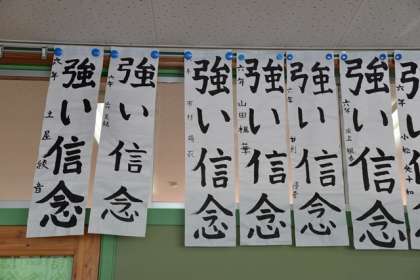 強い信念
六年 土屋 綾音
強い信念
六年
強い信念
強い信念
六年 山田 楓華
強い信念
強い信念
六年
強い信念
六年